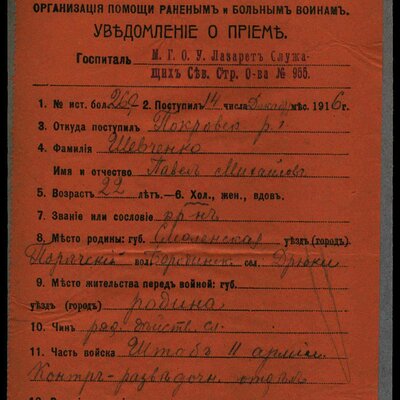 ОРГАНИЗАЦІЯ ПОМОЩИ РАНЕНЫМЪ и БОЛЬНЫМЪ ВОИНАМЪ.
УВѢДОМЛЕНІЕ О ПРІЕМѢ.
Госпиталь М. Г. О. У. Лазаретъ Служа-
щихъ Сѣв. Стр. О-ва № 955.
1. № ист. бол. 2. Поступилъ 14 числа Декабр мѣс. 1916 г.
3. Откуда поступилъ Покровск р.
4. Фамилія Шевченко
Имя и отчество Павелъ Михайлов
5. Возрастъ 22 лѣтъ.—6. Хол., жен., вдов.
7. Званіе или сословіе кр-нъ
8. Мѣсто родины: губ. Смоленская уѣздъ (городъ).
Порѣчскій вол. сел.
9. Мѣсто жительства передъ войной: губ.
уѣздъ (городъ) родина
10. Чинъ ряд.
11. Часть войска Штабъ 11 арміи
Контръ-развѣдочн. отдѣл